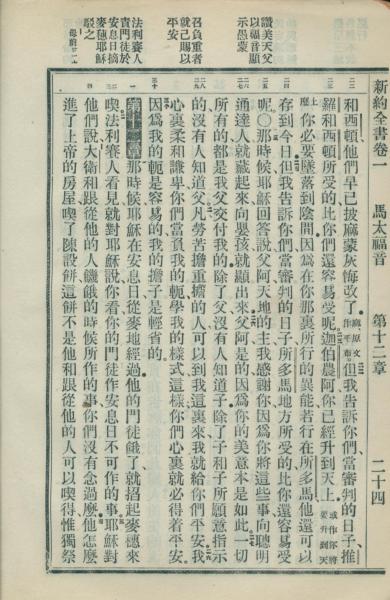 新約全書卷一　馬太福音　第十二章　二十四
讚美天父
以福音顯
示愚蒙
召負重者
就己賜以
平安
法利賽人
責門徒於
安息日摘
麥穗耶穌
駁之
和西頓他們早已披麻蒙灰悔改了但我告訴你們當審判的日子推
羅和西頓所受的比你們還容易受呢迦伯農阿你已經升到天上
麼你必要墜落到陰間因爲在你那裏所行的異能若行在所多馬他還可以
存到今日但我告訴你們當審判的日子所多馬地方所受的比你還容易受
呢○那時候耶穌回答說父阿天地的主我感謝你因爲你將這些事向聰明
通達人就藏起來向嬰孩就顯出來父阿是的因爲你的美意本是如此一切
所有的都是我父交付我的除了父沒有人知道子除了子和子所願意指示
的沒有人知道父凡勞苦擔重擔的人可以到我這裏來我就給你們平安我
心裏柔和謙卑你們當負我的軛學我的樣式這樣你們心裏就必得着平安
因爲我的軛是容易的我的擔子是輕省的
第十二章
那時候耶穌在安息日從麥地經過他的門徒餓了就招起麥穗來
喫法利賽人看見就對耶穌說你看你的門徒作安息日不可作的事耶穌對
他們說大衛和跟從他的人饑餓的時候所作的事你們沒有念過麼他怎麼
進了上帝的房屋喫了陳設餅這餅不是他和跟從他的人可以喫得惟獨祭